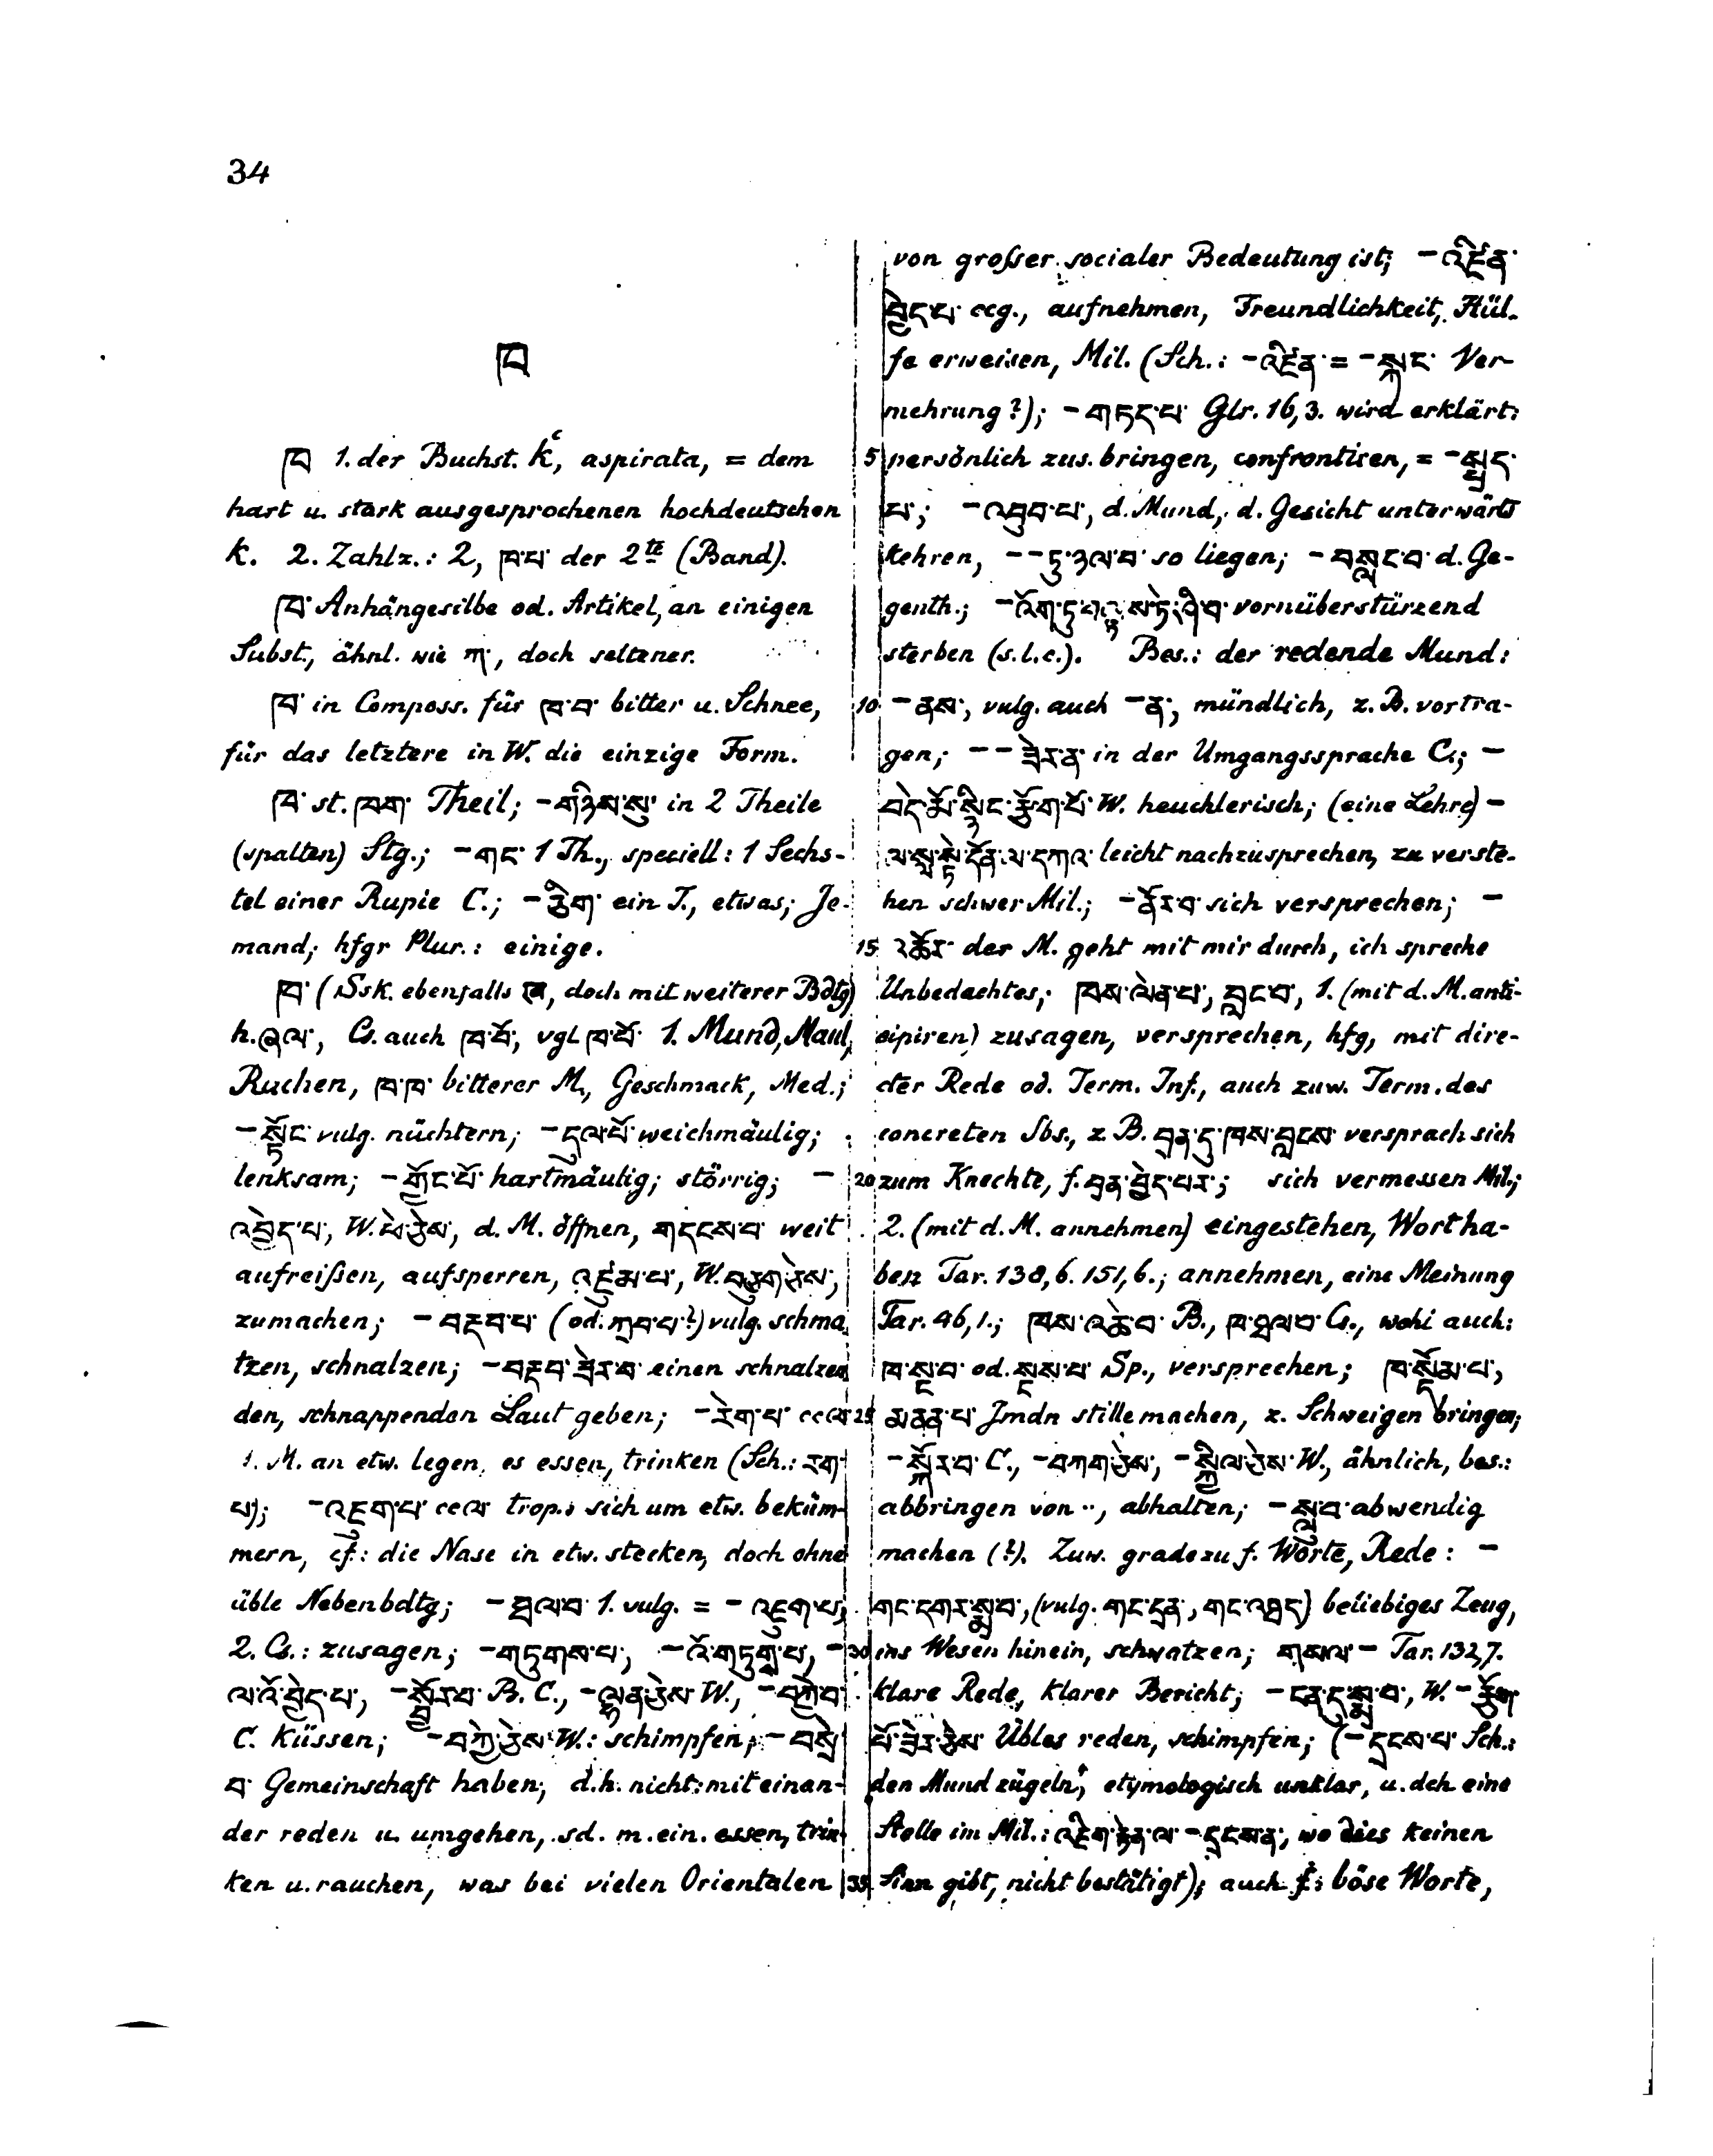 34
ཁ
ཁ 1. der Buchst. kʿ, aspirata, = dem
hart u. stark ausgesprochenen hochdeutschen
k. 2. Zahlz.: 2, ཁ་པ་ der 2te (Band).
ཁ་ Anhängesilbe od. Artikel, an einigen
Subst., ähnl. wie ཀ་, doch seltener.
ཁ་ in Composs. für ཁ་བ་ bitter u. Schnee,
für das letztere in W. die einzige Form.
ཁ་ st. ཁག་ Theil; – གཉིས་སུ་ in 2 Theile
(spalten) Stg.; – གང་ 1 Th., speciell: 1 Sechs-
tel einer Rupie C.; – ཅིག་ ein T., etwas; Je-
mand; hfgr Plur.: einige.
ཁ་ (Ssk. ebenfalls ख, doch mit weiterer Bdtg)
h. ཞལ་, Cs. auch ཁ་བོ་, vgl ཁ་པོ་ 1. Mund, Maul,
Rachen, ཁ་ཁ་ bitterer M., Geschmack, Med.;
– སྟོང་ vulg. nüchtern; – དུལ་པོ་ weichmäulig;
lenksam; – གྱོང་པོ་ hartmäulig; störrig; –
འབྱེད་པ་, W. ཕེ་ཅེས་, d. M. öffnen, གདངས་བ་ weit
aufreißen, aufsperren, འཛུམ་པ་, W. བཙུག་ཅེས་,
zumachen; – བརྡབ་པ་ (od. ཀྲབ་པ་?) vulg. schma
tzen, schnalzen; – བརྡབ་ཟེར་བ་ einen schnalzen
den, schnappenden Laut geben; – རེག་པ་ ccལ་
1. M. an etw. legen, es essen, trinken (Sch.: རག་
པ); – འཇུག་པ་ ccལ་ trop.: sich um etw. beküm-
mern, cf: die Nase in etw. stecken, doch ohne
üble Nebenbdtg; – ཐལ་བ་ 1. vulg. = – འཇུག་པ་;
2. Cs.: zusagen; – གཏུགས་པ་, – འོ་གཏུགྤ་, –
ལ་འོ་བྱེད་པ་, – སྦྱོརབ་ B. C., – ལྷན་ཅེས་ W., – བཀྱེ་བ་
C. küssen; – བཀྱེ་ཅེས་ W.: schimpfen; – བསྲེ་
བ་ Gemeinschaft haben, d.h. nicht: mit einan-
der reden u. umgehen, sd. m. ein. essen, trin-
ken u. rauchen, was bei vielen Orientalen
von großer socialer Bedeutung ist; – འཛིན་
བྱེད་པ་ ccg., aufnehmen, Freundlichkeit, Hül-
fe erweisen, Mil. (Sch.: – འཛིན་ = – སྐང་ Ver-
mehrung?); – གཏད་པ་ Glr. 16,3. wird erklärt:
5 persönlich zus. bringen, confrontiren, = – སྤྲད་
པ་; – འབུབ་པ་, d. Mund, d. Gesicht unterwärts
kehren, – – ཏུ་ཉལ་བ་ so liegen; – བསླང་བ་ d. Ge-
genth.; – འོག་ཏུ་ vornüberstürzend
sterben (s.l.c.). Bes.: der redende Mund:
10 – ནས་, vulg. auch – ན་, mündlich, z. B. vortra-
gen; – – ཟེར་ན་ in der Umgangssprache C.; –
བདེ་མོ་སྙིང་རྩོག་པོ་ W. heuchlerisch; (eine Lehre) –
ལ་སླ་སྟེ་དོན་ལ་དཀའ་ leicht nachzusprechen, zu verste-
hen schwer Mil.; – ནོར་བ་ sich versprechen; –
15 འཆོར་ der M. geht mit mir durch, ich spreche
Unbedachtes; ཁས་ལེན་པ་, བླང་བ་, 1. (mit d. M. anti-
cipiren) zusagen, versprechen, hfg, mit dire-
cter Rede od. Term. Inf., auch zuw. Term. des
concreten Sbs., z. B. བྲན་དུ་ཁས་བླངས་ versprach sich
20 zum Knechte, f. བྲན་བྱེད་པར་; sich vermessen Mil.;
2. (mit d. M. annehmen) eingestehen, Wort ha-
ben Tar. 138,6. 151,6.; annehmen, eine Meinung
Tar. 46,1.; ཁས་འཆེ་བ་ B., ཁ་ཐལ་བ་ Cs., wohl auch:
ཁ་སྡང་བ་ od. སྡས་པ་ Sp., versprechen; ཁ་སྡོམ་པ་,
25 མནན་པ་ Jmdn stille machen, z. Schweigen bringen;
– སྐོར་བ་ C., – བཀག་ཅེས་, – སྐྱིལ་ཅེས་ W., ähnlich, bes.:
abbringen von .., abhalten; – སླབ་ abwendig
machen (?). Zuw. gradezu f. Worte, Rede: –
གང་དགར་སྨྲབ་, (vulg. གང་དྲན་, གང་འཐད་) beliebiges Zeug,
30 ins Wesen hinein, schwatzen; གསལ་ – Tar. 132,7.
klare Rede, klarer Bericht; – ངན་དུ་སྨྲ་བ་, W. – རྩོག་
པོ་ཟེར་ཅེས་ Übles reden, schimpfen; (– དྲངས་པ་ Sch.:
den Mund zügeln, etymologisch unklar, u. dch eine
Stelle im Mil.: འཇིག་རྟེན་ལ་ – དྲངས་ན་, wo dies keinen
35 Sinn gibt, nicht bestätigt); auch f: böse Worte,